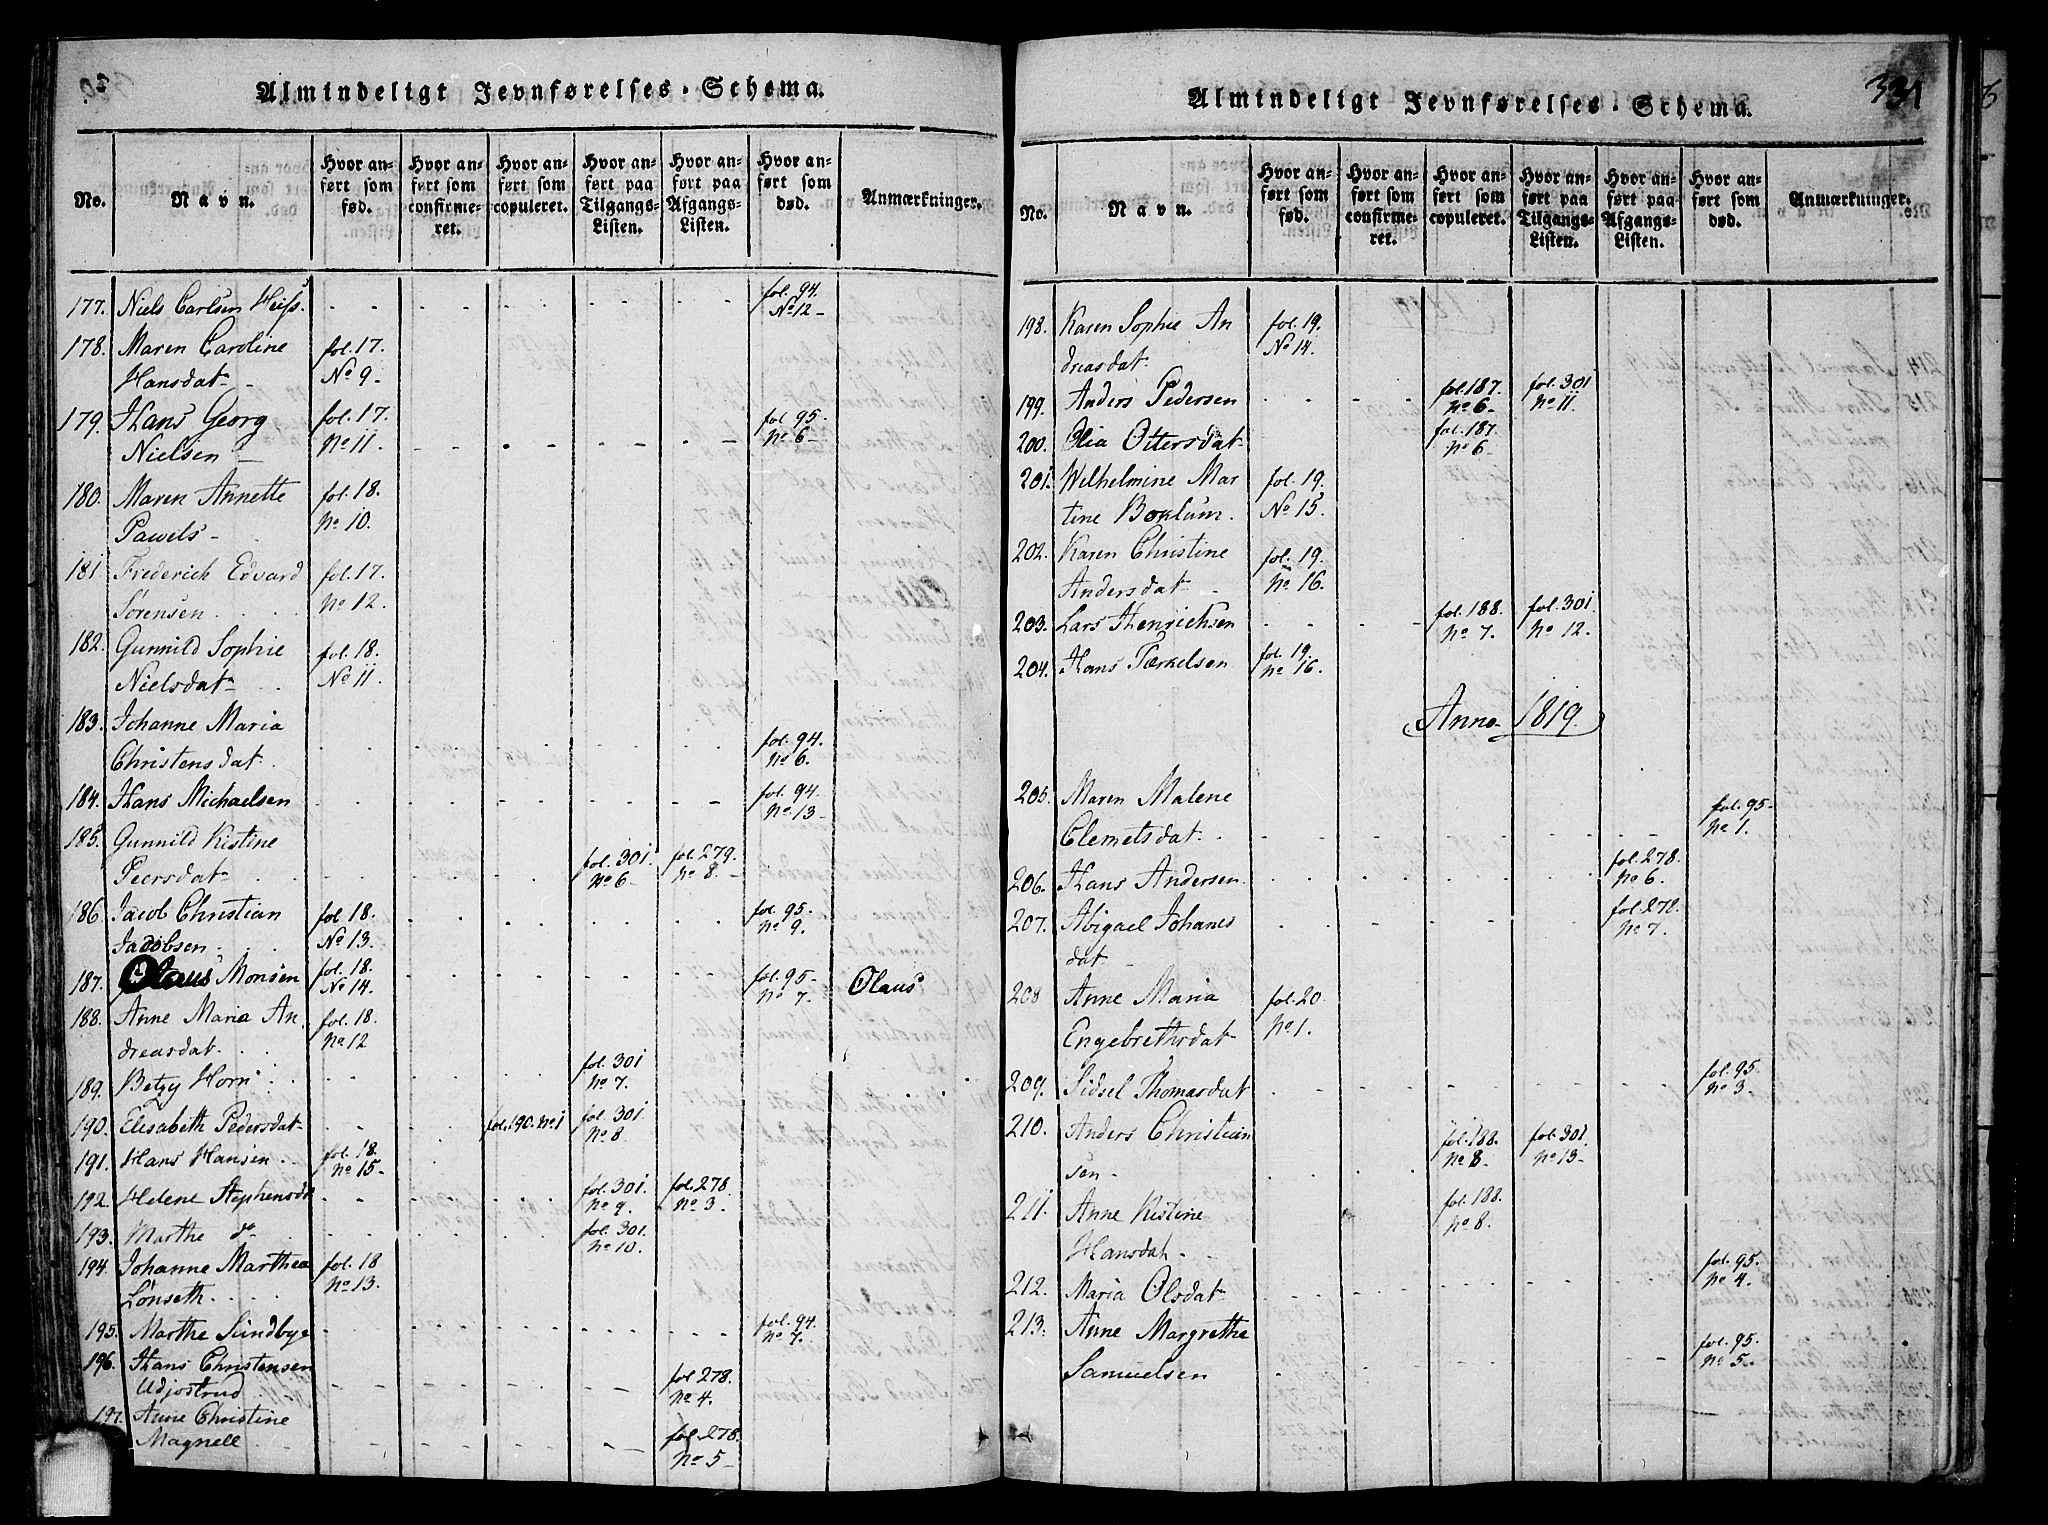 Almindeligt Jevnførelses-Schema.
No.
Navn.
Hvor an-
ført som
fød.
Hvor an-
ført som
confirme-
ret.
Hvor an-
ført som
copuleret.
Hvor an-
ført paa
Tilgangs-
Listen.
Hvor an-
ført paa
Afgangs-
Listen.
Hvor an-
ført som
død.
Anmærkninger.
177. Niels Carlsen Heiss. fol. 94.
No 12-
178. Maren Caroline fol. 17.
Hansdat- No 9-
179. Hans Georg fol. 17. fol. 95
Nielsen No 11. No 6-
180. Maren Annette fol. 18.
Pawels- No 10.
181. Frederich Edvard fol. 17.
Sørensen No 12.
182. Gunnild Sophie fol. 18.
Nielsdat- No 11
183. Johanne Maria fol. 94.
Christensdat. No 6.
184. Hans Michaelsen fol. 94
No 13-
185. Gunnild Kistine fol. 301. fol. 279.
Peersdat- No 6- No 8.-
186. Jacob Christian fol. 18. fol. 95.
Jacobsen No 13. No 9.
187. Olaus Monsen fol. 18. fol. 95- Olaus
No 14. No 7.
188. Anne Maria An- fol. 18.
dreasdat. No 12
189. Betzy Horn fol. 301
No 7.
190. Elisabeth Pedersdat- fol. 190. No 1 fol. 301
No 8.
191. Hans Hansen fol. 18.
No 15-
192. Helene Stephensdt fol. 301. fol. 278.
No 9. No 3.
193. Marthe do fol. 301.
No 10.
194. Johanne Marthea fol. 18
Lönseth. No 13.
195. Marthe Sundbye fol. 94.
No 7.
196. Hans Christensen fol. 278.
Udjostrud No 4.
197. Anne Christine fol. 278.
Magnell No 5-
Almindeligt Jevnførelses-Schema.
331
No.
Navn.
Hvor an-
ført som
fød.
Hvor an-
ført som
confirme-
ret.
Hvor an-
ført som
copuleret.
Hvor an-
ført paa
Tilgangs-
Listen.
Hvor an-
ført paa
Afgangs-
Listen.
Hvor an-
ført som
død.
Anmærkninger.
198. Karen Sophie An fol. 19.
dreasdat. No 14.
199. Anders Pedersen fol. 187. fol. 301
No 6- No 11.
200. Olia Ottersdat- fol. 187.
No 6-
201. Wilhelmine Mar fol. 19.
tine Boklum. No 15.
202. Karen Christine fol. 19.
Andersdat- No 16.
203. Lars Henrichsen fol. 188. fol. 301.
No 7. No 12.
204. Hans Tærkelsen fol. 19.
No 16.
Anno 1819.
205. Maren Malene fol. 95-
Clemetsdat. No 1.
206. Hans Andersen. fol. 278.
No 6.
207. Abigael Johanes fol. 278.
dat- No 7.
208 Anne Maria fol. 20.
Engebrethsdat- No 1.
209. Sidsel Thomasdat fol. 95.
No 3.
210. Anders Christian fol. 188. fol. 301.
sen- No 8- No 13-
211. Anne Kistine fol. 188.
Hansdat- No 8.
212. Maria Olsdat- fol. 95.
No 4.
213. Anne Margrethe fol. 95.
Samuelsen No 5-